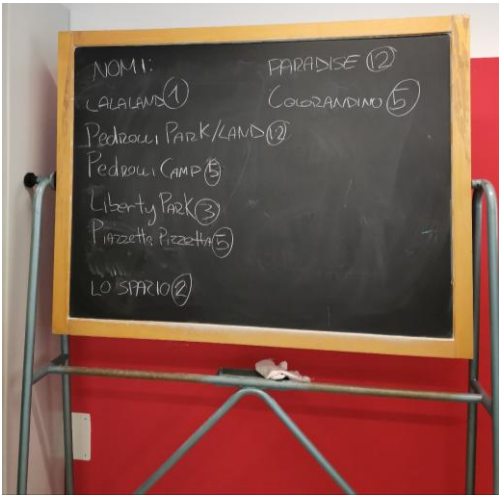 NOMI:
LALALAND 1
Pedrolli PARK/LAND 12
Pedrolli CAMP 5
Liberty PARK 3
PIAZZETTA PIZZETTA 5
LO SPAZIO 2
PARADISE 12
COLORANDINO 5